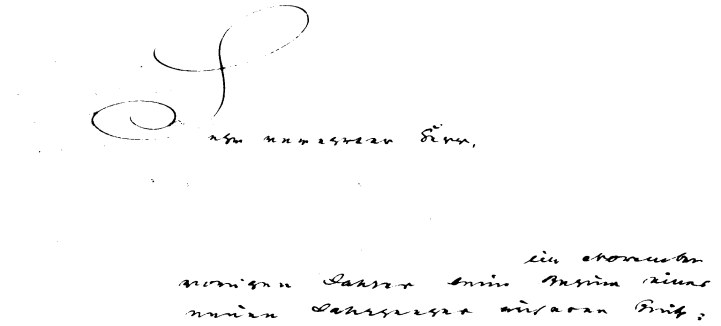 Sehr verehrter Herr,
im November
vorigen Jahres beim Beginn eines
neuen Jahrganges unserer Zeit=